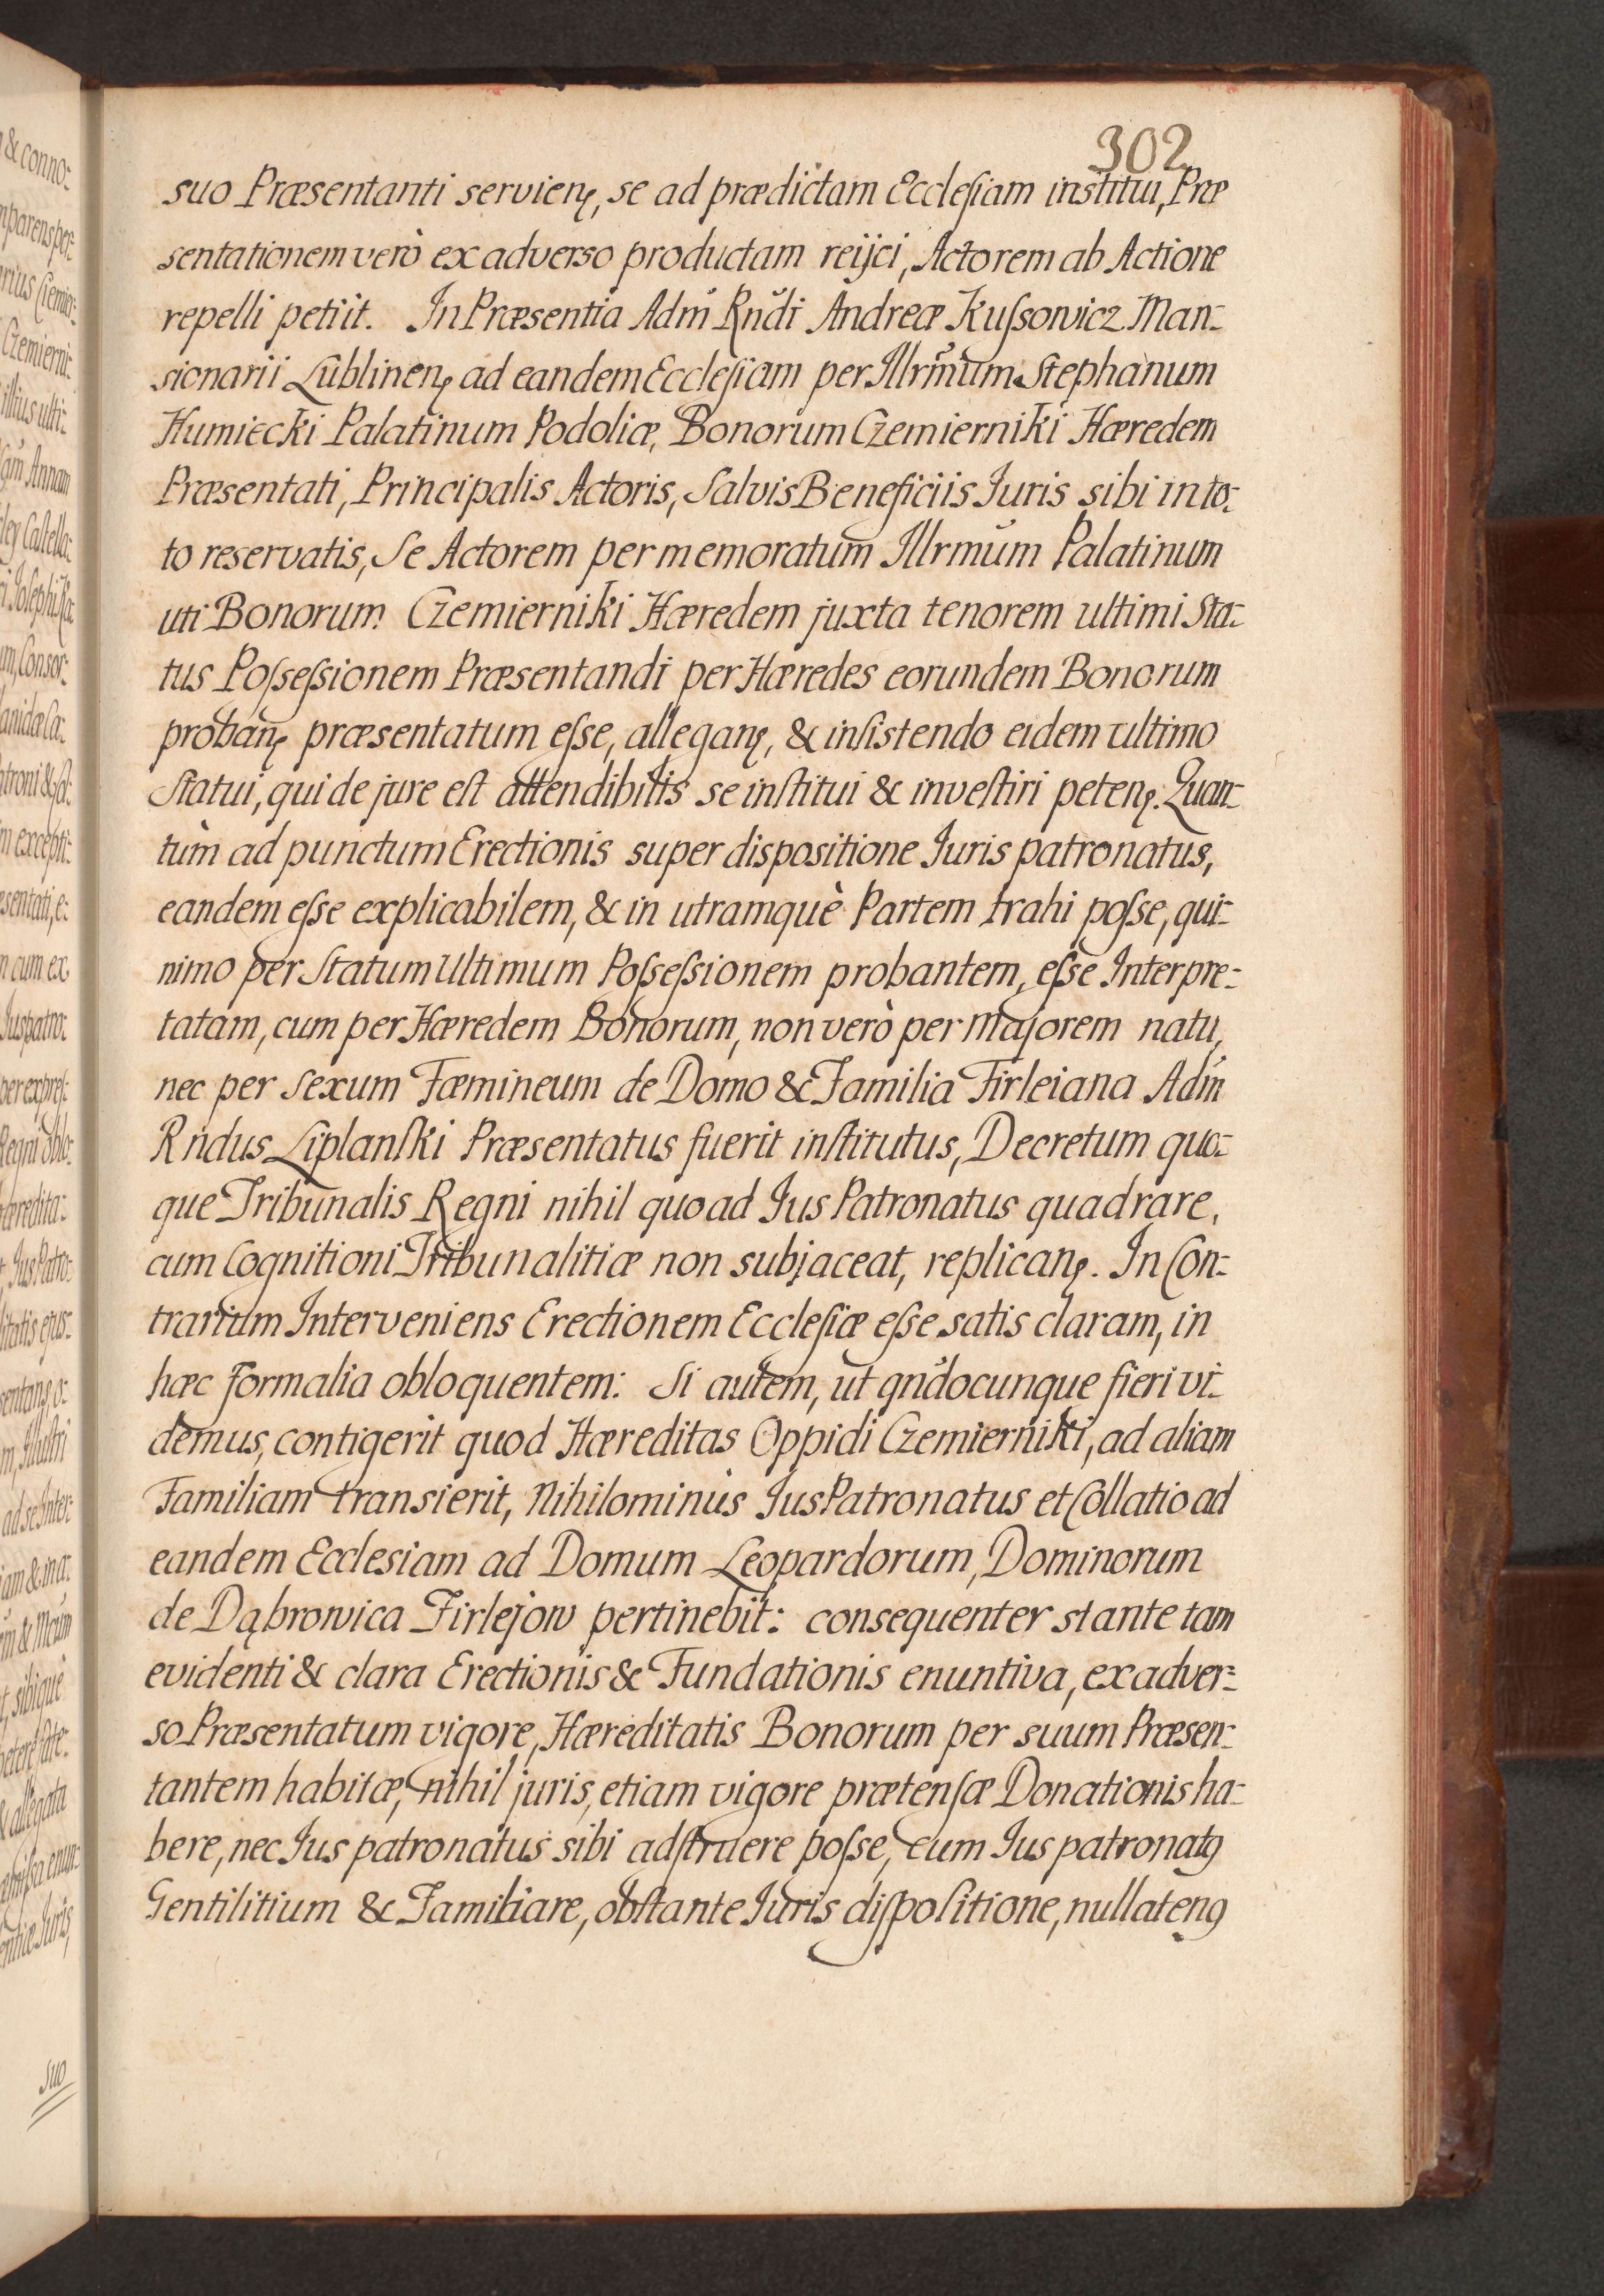 302
suo Præsentanti servienꝭ, se ad prædictam Ecclesiam institui, Præ
sentationem verò ex adverso productam reijci, Actorem ab Actione
repelli petiit. In Præsentia Adm̃ Rñdi Andreæ Kuſsowicz Man-
sionarii Lublinenꝭ ad eandem Eccleſiam per Illrm̃um Stephanum
Humiecki Palatinum Podoliæ, Bonorum Czemierniki Hæredem
Præsentati, Principalis Actoris, Salvis Beneficiis Juris sibi in to-
to reservatis, Se Actorem per memoratum Illrmũm Palatinum
uti Bonorum Czemierniki Hæredem juxta tenorem ultimi Sta-
tus Poſseſsionem Præsentandi per Hæredes eorundem Bonorum
probanꝭ præsentatum eſse, alleganꝭ, & inſistendo eidem ultimo
Statui, qui de jure eſt attendibilis se inſtitui & inveſtiri petenꝭ. Quan-
tùm ad punctum Erectionis super dispositione Juris patronatus,
eandem eſse explicabilem, & in utramquè Partem trahi poſse, qui-
nimo per Statum Ultimum Poſseſsionem probantem, eſse Interpre-
tatam, cum per Hæredem Bonorum, non verò per Majorem natu,
nec per Sexum Fæmineum de Domo & Familia Firleiana Adm̃
Rñdus Liplanſki Præsentatus fuerit inſtitutus, Decretum quo-
que Tribunalis Regni nihil quo ad Jus Patronatus quadrare,
cum Cognitioni Tribunalitiæ non subjaceat, replicanꝭ. In Con-
trarium Interveniens Erectionem Eccleſiæ eſse satis claram, in
hæc formalia obloquentem: Si autem, ut qñdocunque fieri vi-
demus, contigerit quod Hæreditas Oppidi Czemierniki, ad aliam
Familiam transierit, Nihilominùs Jus Patronatus et Collatio ad
eandem Ecclesiam ad Domum Leopardorum, Dominorum
de Dąbrowica Firlejow pertinebit: consequenter stante tam
evidenti & clara Erectionis & Fundationis enuntiva, ex adver-
so Præsentatum vigore, Hæreditatis Bonorum per suum Præsen-
tantem habitæ, nihil juris, etiam vigore prætenſæ Donationis ha-
bere, nec Jus patronatus sibi adſtruere poſse, cum Jus patronatꝰ
Gentilitium & Familiare, obſtante Juris diſpoſitione, nullatenꝰ
suo